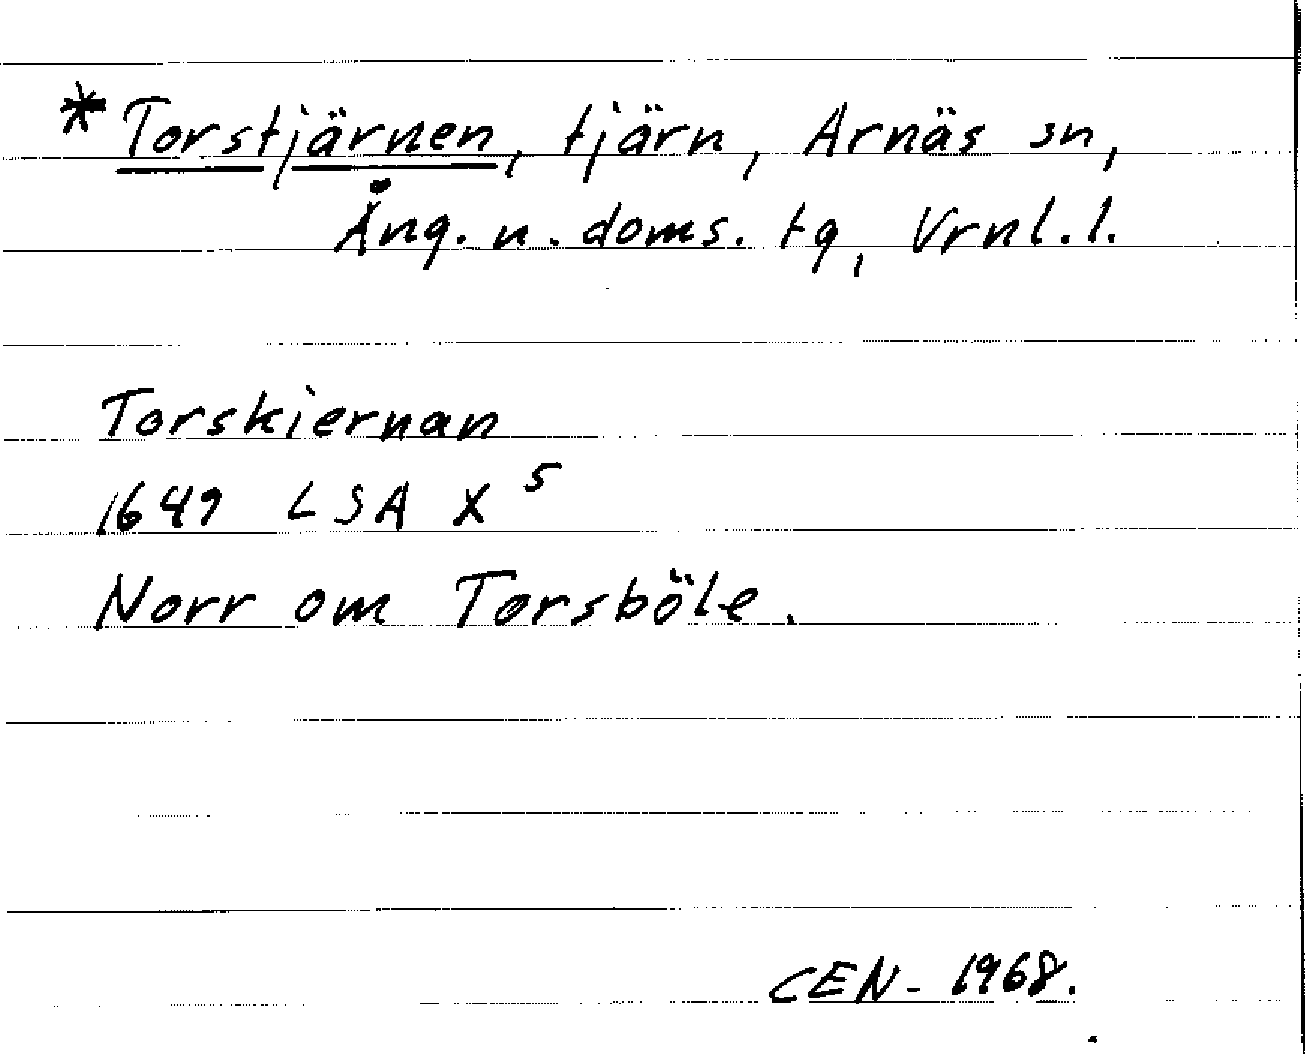 *Torstjärnen, tjärn, Arnäs sn,
Ång. n. doms. tg, Vrnl. l.
Torskiernan
1649 LSA X 5
Norr om Torsböle.
CEN - 1968.